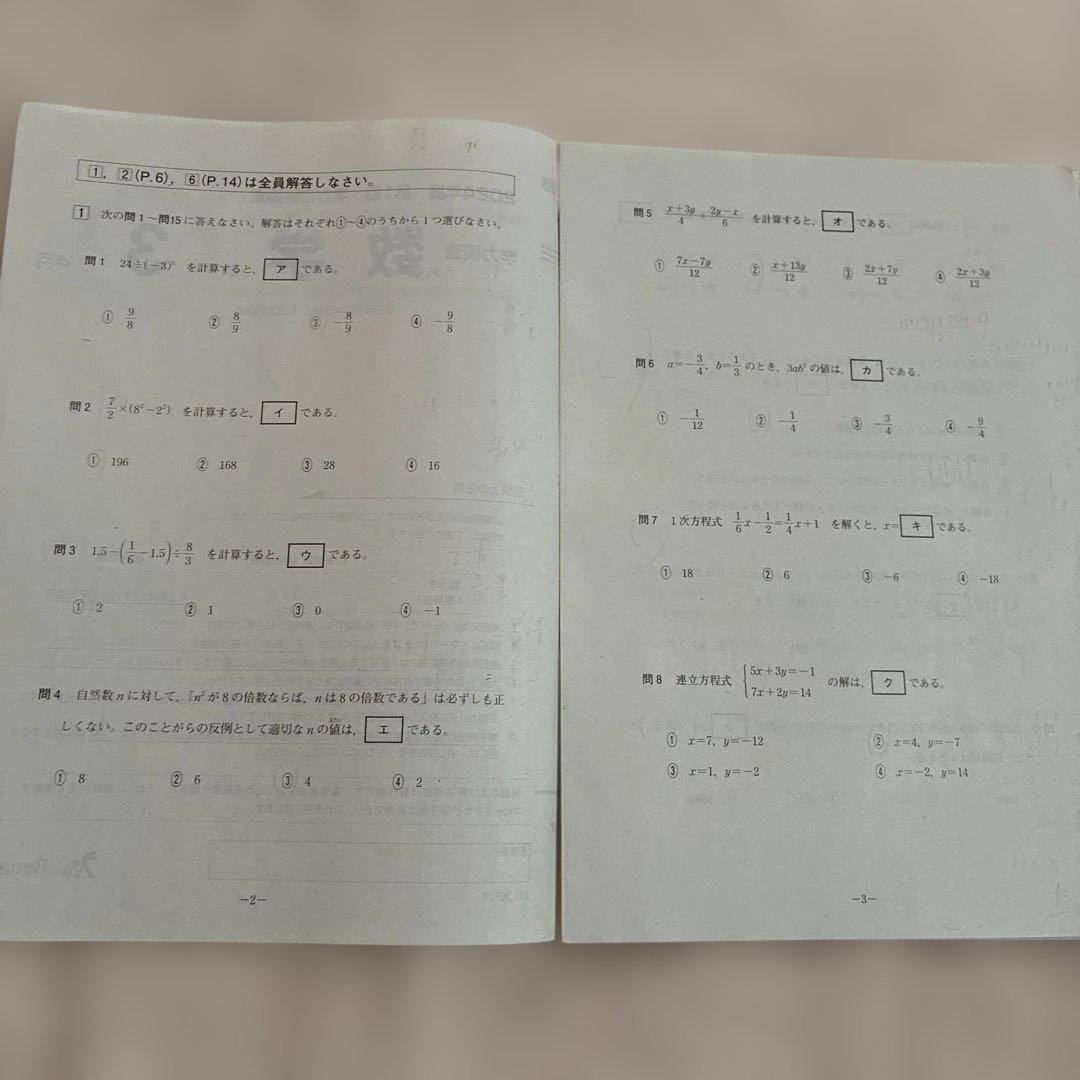 1, 2(P.6), 6(P.14)は全員解答しなさい。
1 次の問1〜問15に答えなさい。解答はそれぞれ①〜④のうちから1つ選びなさい。
問1 24÷(−3)³ を計算すると、ア である。
① 9/8 ② 8/9 ③ −8/9 ④ −9/8
問2 7/2×(8²−2³) を計算すると、イ である。
① 196 ② 168 ③ 28 ④ 16
問3 1.5−(1/6−1.5)÷8/3 を計算すると、ウ である。
① 2 ② 1 ③ 0 ④ −1
問4 自然数nに対して、「n²が8の倍数ならば、nは8の倍数である」は必ずしも正
しくない。このことがらの反例として適切なnの値は、エ である。
① 8 ② 6 ③ 4 ④ 2
−2−
問5 (x+3y)/4+(2y−x)/6 を計算すると、オ である。
① (7x−7y)/12 ② (x+13y)/12 ③ (2x+7y)/12 ④ (2x+3y)/12
問6 a=−3/4, b=1/3のとき、3ab²の値は、カ である。
① −1/12 ② −1/4 ③ −3/4 ④ −9/4
問7 1次方程式 1/6x−1/2=1/4x+1 を解くと、x=キ である。
① 18 ② 6 ③ −6 ④ −18
問8 連立方程式 {5x+3y=−1
7x+2y=14 の解は、ク である。
① x=7, y=−12 ② x=4, y=−7
③ x=1, y=−2 ④ x=−2, y=14
−3−